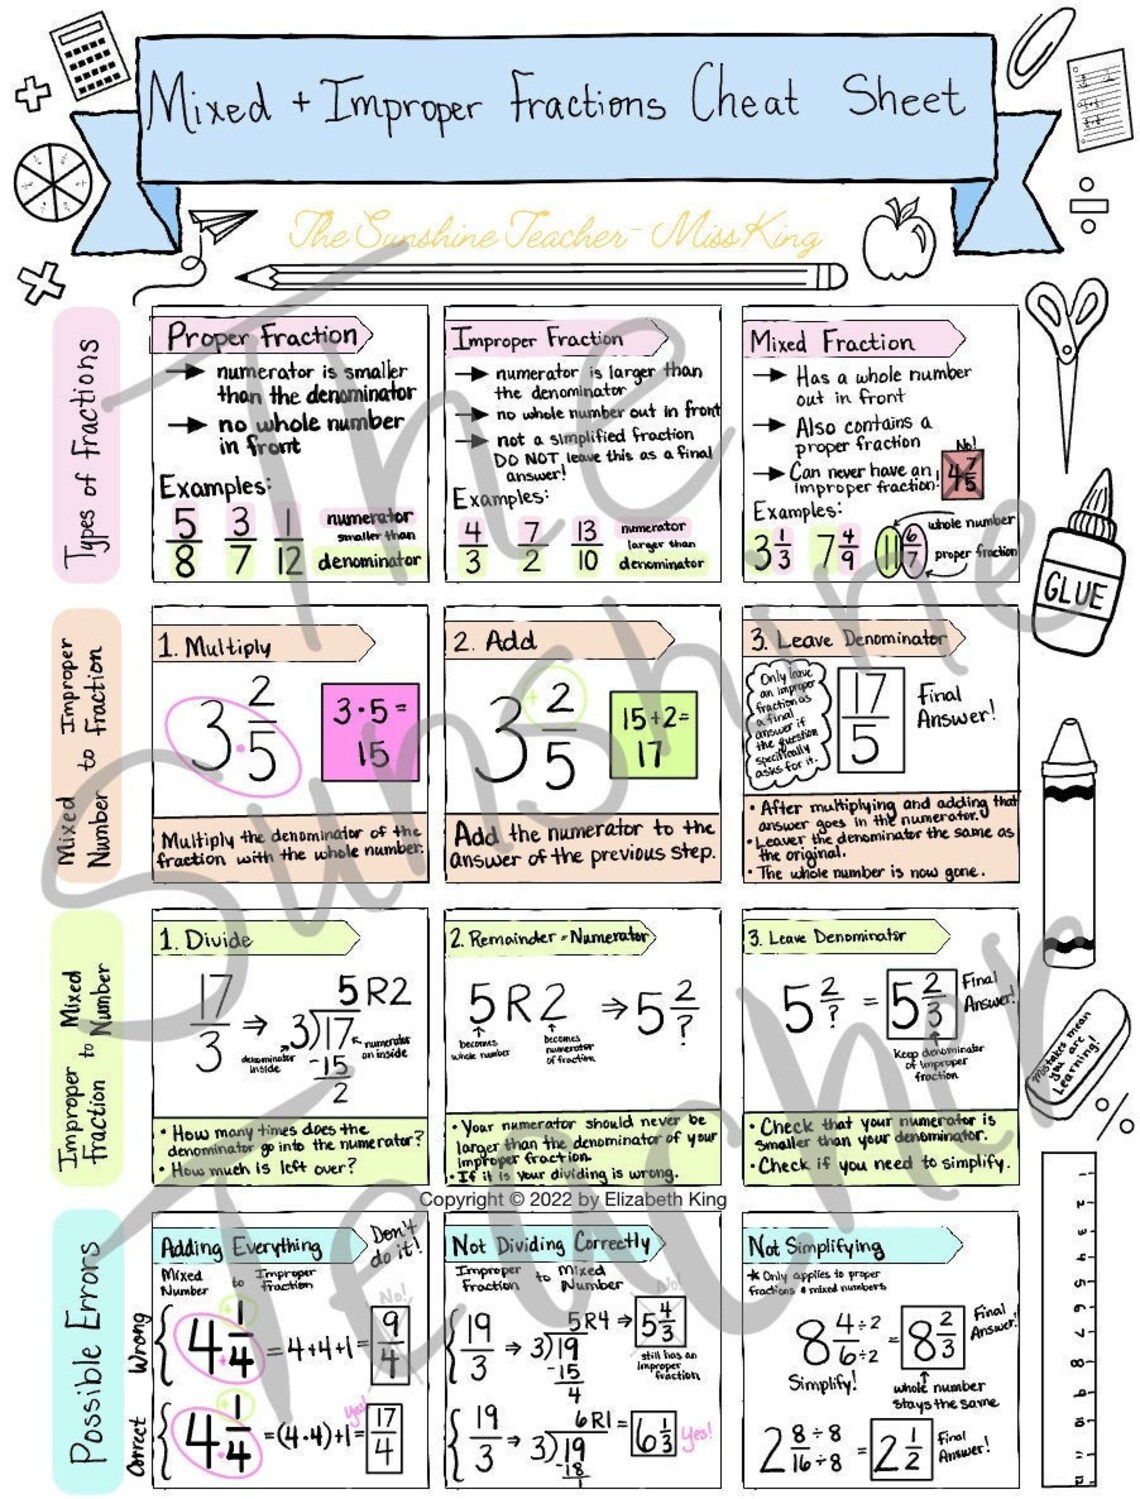 Mixed + Improper Fractions Cheat Sheet
The Sunshine Teacher - Miss King
Types of Fractions
Proper Fraction
→ numerator is smaller
than the denominator
→ no whole number
in front
Examples:
5/8 3/7 1/12
numerator
smaller than
denominator
Improper Fraction
→ numerator is larger than
the denominator
→ no whole number out in front
→ not a simplified fraction
DO NOT leave this as a final
answer!
Examples:
4/3 7/2 13/10
numerator
larger than
denominator
Mixed Fraction
→ Has a whole number
out in front
→ Also contains a
proper fraction
→ Can never have an
improper fraction!
No!
4 7/5
Examples:
3 1/3 7 4/9 11 6/7
whole number
proper fraction
GLUE
Mixed Number to Improper Fraction
1. Multiply
3 2/5
3·5=
15
Multiply the denominator of the
fraction with the whole number.
2. Add
3 + 2/5
15+2=
17
Add the numerator to the
answer of the previous step.
3. Leave Denominator
Only leave
an improper
fraction as
a final
answer if
the question
specifically
asks for it.
17/5
Final
Answer!
• After multiplying and adding that
answer goes in the numerator.
• Leaver the denominator the same as
the original.
• The whole number is now gone.
Improper Fraction to Mixed Number
1. Divide
17/3 ⇒ 3)17
5 R2
-15
2
denominator
inside
numerator
on inside
• How many times does the
denominator go into the numerator?
• How much is left over?
2. Remainder = Numerator
5 R 2 ⇒ 5 2/?
becomes
whole number
becomes
numerator
of fraction
• Your numerator should never be
larger than the denominator of your
improper fraction.
• If it is your dividing is wrong.
3. Leave Denominator
5 2/? = 5 2/3
Final
Answer!
Keep denominator
of improper
fraction
• Check that your numerator is
smaller than your denominator.
• Check if you need to simplify.
Mistakes mean
you are
Learning!
Copyright © 2022 by Elizabeth King
Possible Errors
Wrong
Correct
Adding Everything
Don't
do it!
Mixed Number to Improper Fraction
No!
4 1/4 = 4+4+1 = 9/4
Yes!
4 1/4 = (4·4)+1 = 17/4
Not Dividing Correctly
Improper Fraction to Mixed Number
No!
19/3 ⇒ 3)19 5R4 ⇒ 5 4/3
-15
4
still has an
improper
fraction
19/3 ⇒ 3)19 6R1 = 6 1/3 Yes!
-18
1
Not Simplifying
* Only applies to proper
fractions & mixed numbers
8 4÷2/6÷2 = 8 2/3
Final
Answer!
Simplify!
whole number
stays the same
2 8÷8/16÷8 = 2 1/2
Final
Answer!
1
2
3
4
5
6
7
8
9
10
11
12
The
Sunshine
Teachr